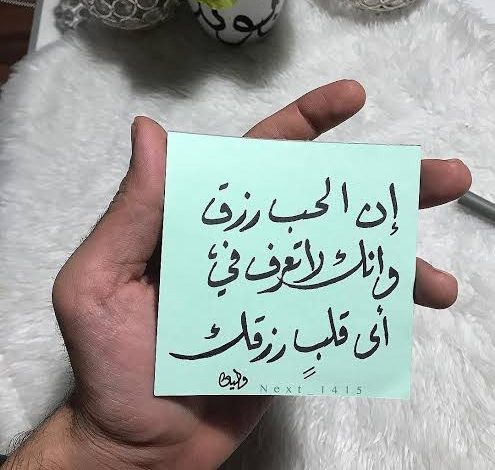 إن الحب رزق
وانك لا تعرف في
أى قلبٍ رزقك
Next_1415